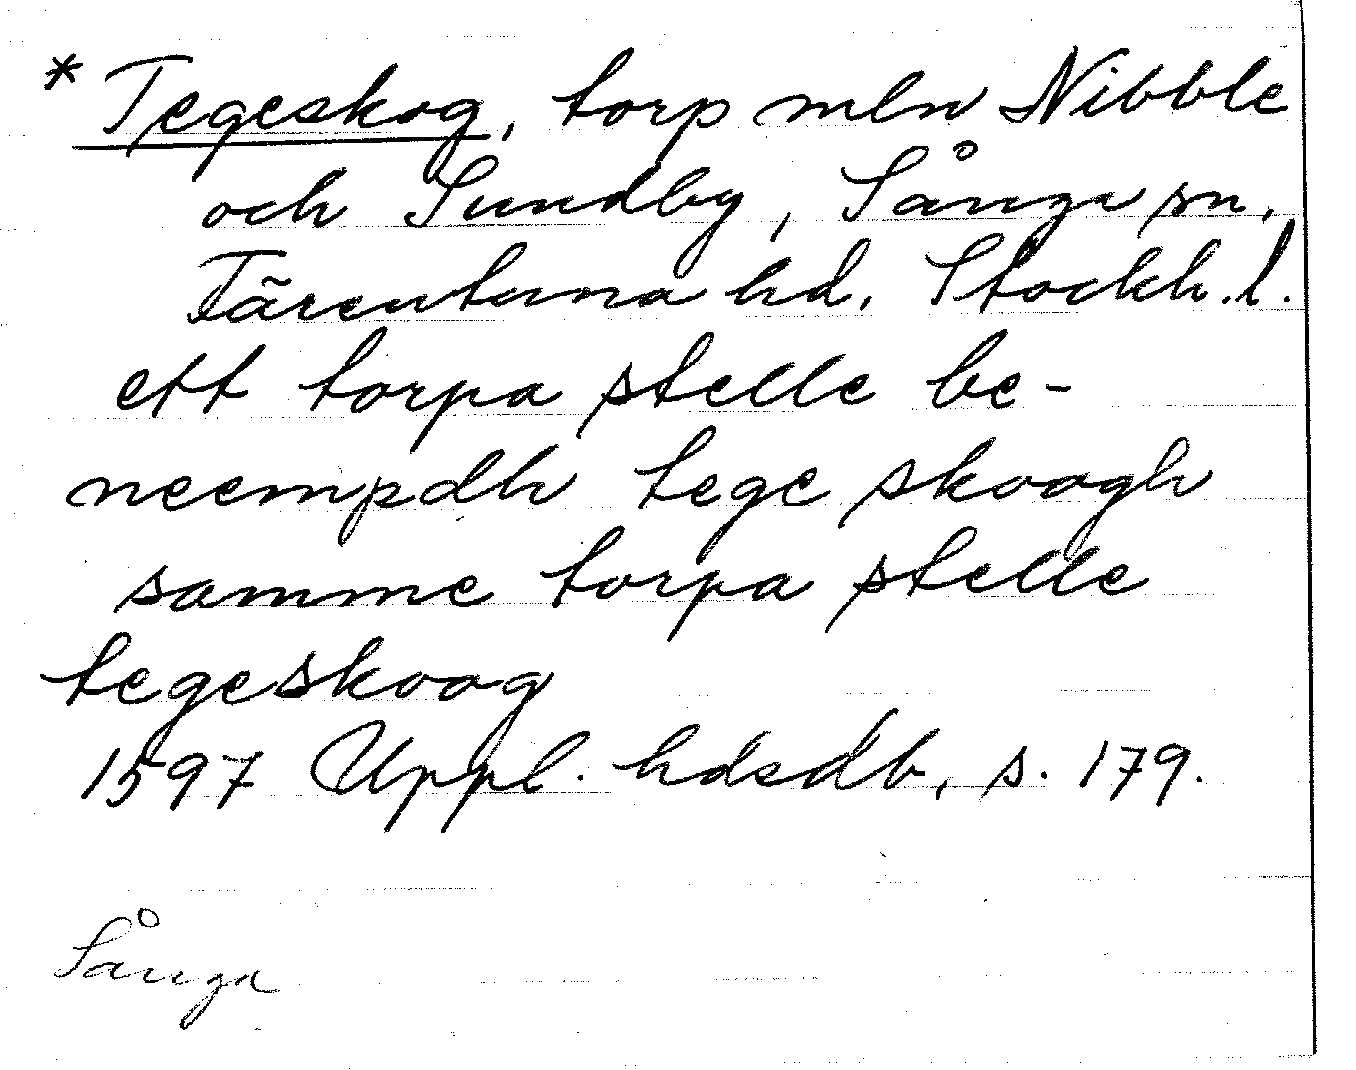 * Tegeskog, torp mln Nibble
och Sundby, Sånga sn,
Färentuna hd, Stockh.l.
ett torpa stelle be-
neempdh tege skoogh
samme torpa stelle
tegeskoog
1597 Uppl. hdsdb, s. 179.
Sånga